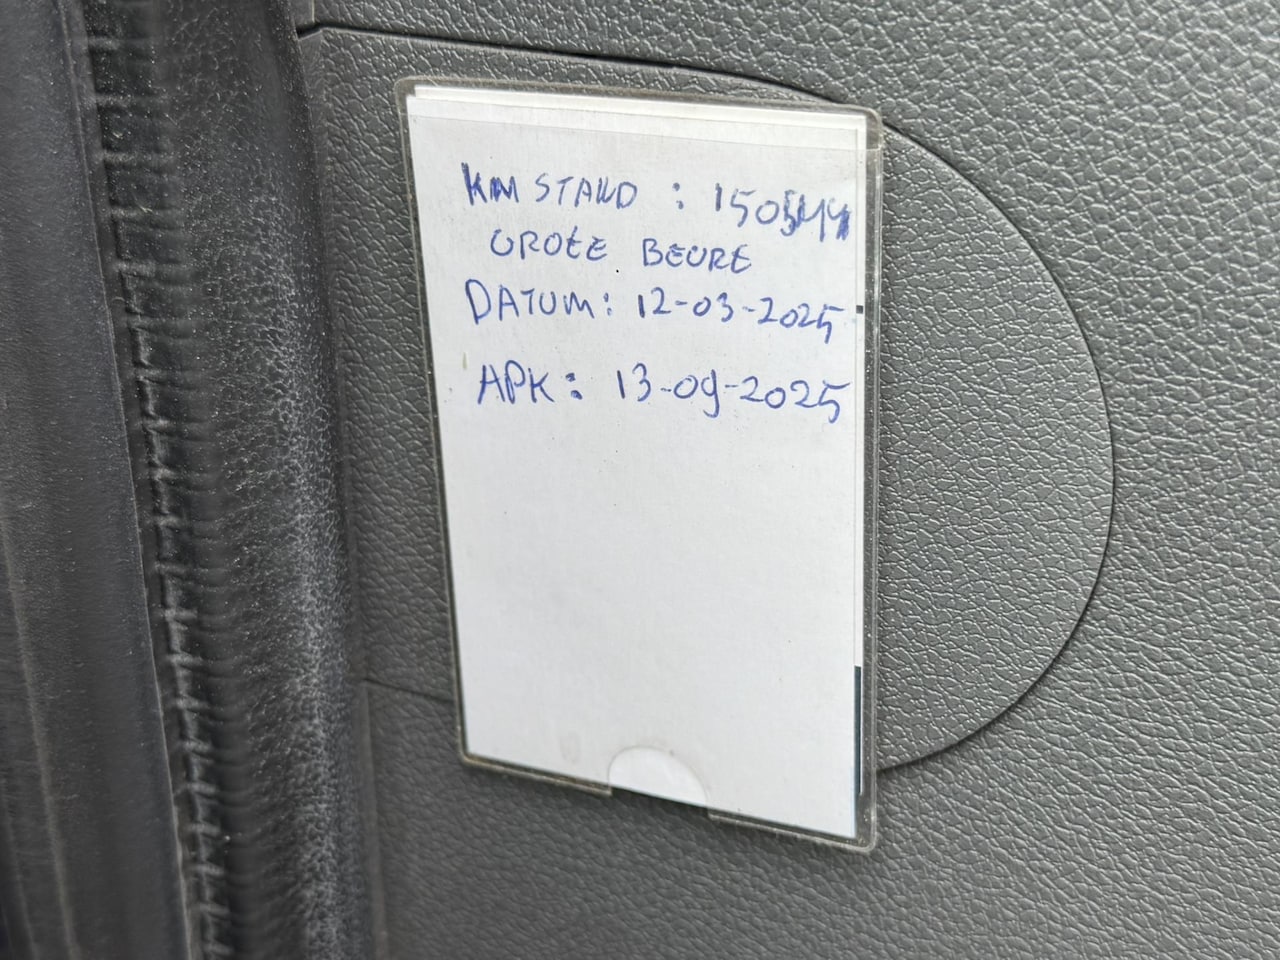 KM STAND : 150544
GROTE BEURT
DATUM: 12-03-2025
APK: 13-09-2025